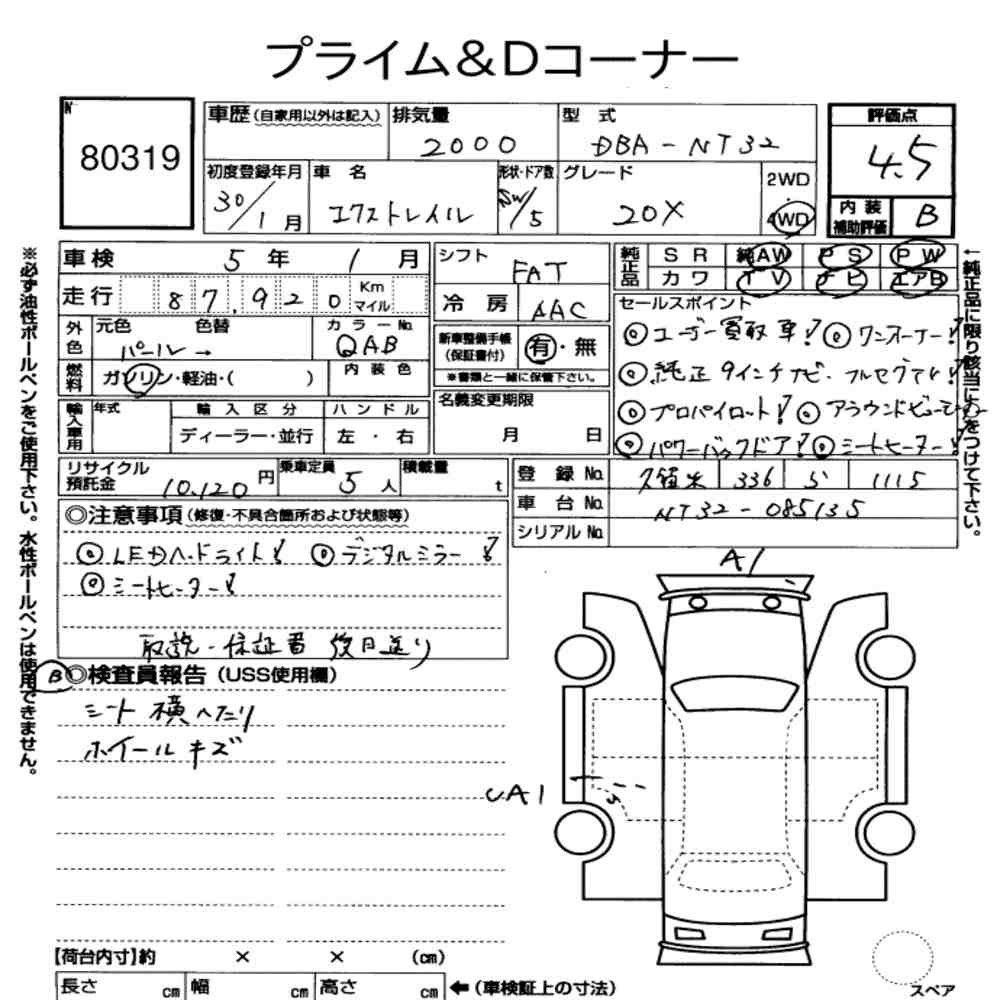 プライム&Dコーナー
№
80319
車歴(自家用以外は記入)
排気量
2000
型 式
DBA-NT32
評価点
4.5
初度登録年月
30/1月
車 名
エクストレイル
形状・ドア数
SW/5
グレード
20X
2WD
4WD
内 装
補助評価
B
車検 5年 1月
シフト
FAT
純正品
SR 純AW PS PW
カワ TV ナビ エアB
走行 87,920 Km
マイル
冷 房
AAC
セールスポイント
◎ユーザー買取車! ◎ワンオーナー!
◎純正9インチナビ・フルセグTV!
◎プロパイロット! ◎アラウンドビューモニター
◎パワーバックドア! ◎シートヒーター!
外色
元色 色替
パール→
カラーNo.
QAB
新車整備手帳
(保証書付)
有・無
※書類と一緒に保管下さい。
燃料
ガソリン・軽油・( )
内 装 色
輸入車用
年式
輸 入 区 分
ハ ン ド ル
ディーラー・並行
左・右
名義変更期限
月 日
リサイクル
預託金
10,120円
乗車定員
5人
積載量
t
登 録 No.
久留米 336 1115
車 台 No.
NT32-085135
シリアルNo.
◎注意事項(修復・不具合箇所および状態等)
◎LEDヘッドライト! ◎デジタルミラー!
◎シートヒーター!
取説・保証書 後日送り
B
◎検査員報告(USS使用欄)
シート横へたり
ホイールキズ
A1
UA1
【荷台内寸】約 × × (cm)
長さ cm 幅 cm 高さ cm ←(車検証上の寸法)
スペア
※必ず油性ボールペンをご使用下さい。水性ボールペンは使用できません。
←純正品に限り該当に○をつけて下さい。